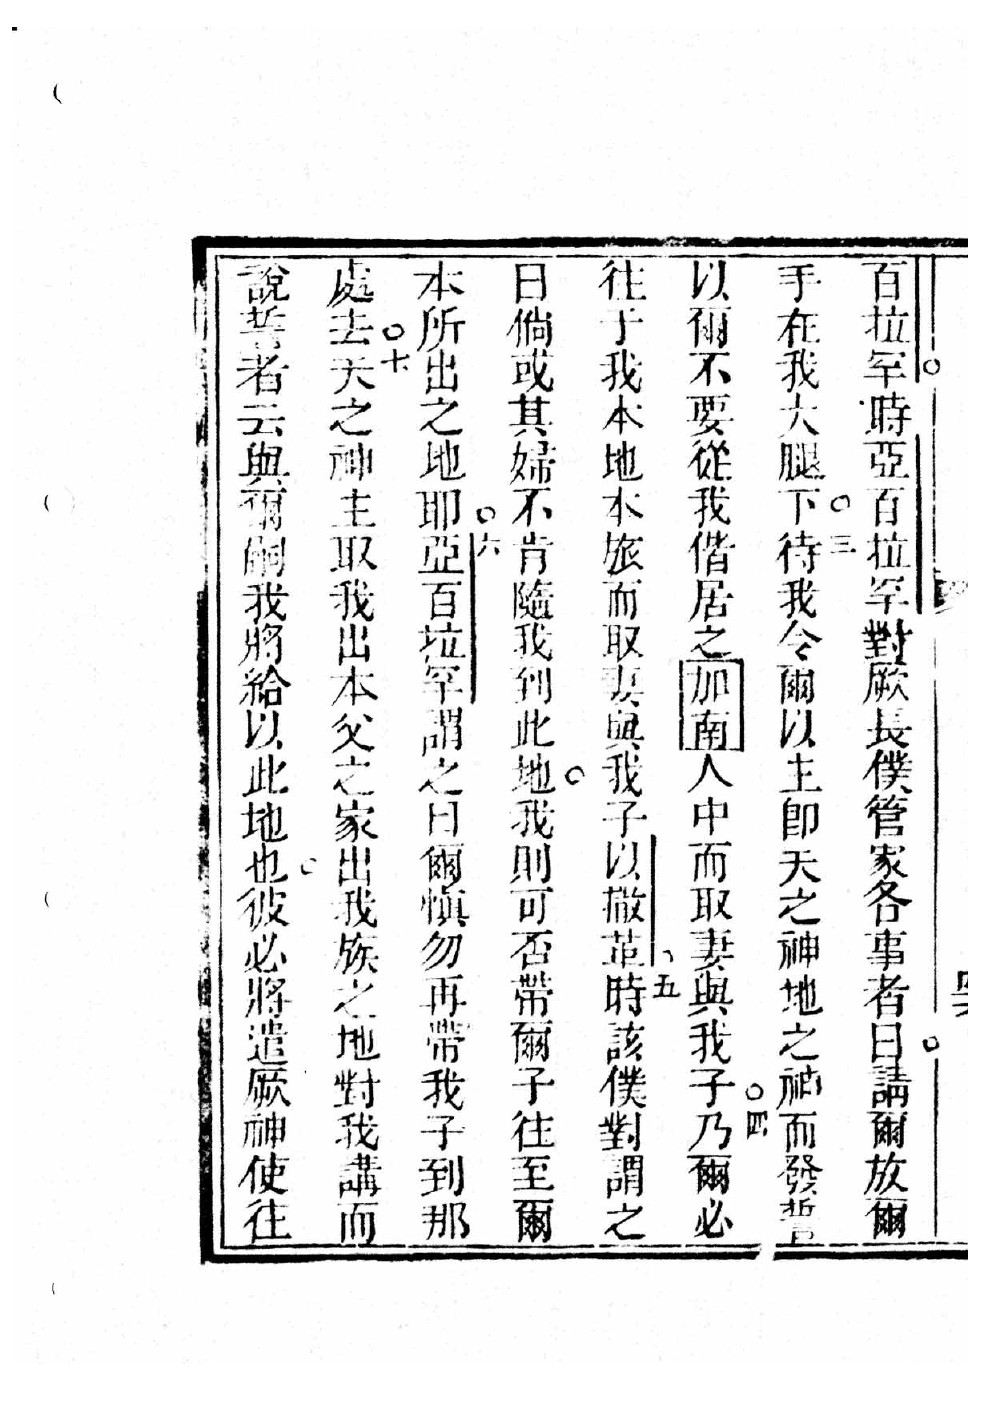 百拉罕時亞百拉罕對厥長僕管家各事者曰請爾放爾
手在我大腿下三待我令爾以主卽天之神地之神而發誓
以爾不要從我偕居之加南人中而取妻與我子四乃爾必
往于我本地本族而取妻與我子以撒革時五該僕對謂之
曰倘或其婦不肯隨我到此地我則可否帶爾子往至爾
本所出之地耶六亞百拉罕謂之曰爾慎勿再帶我子到那
處去七天之神主取我出本父之家出我族之地對我講而
說誓者云與爾嗣我將給以此地也彼必將遣厥神使往